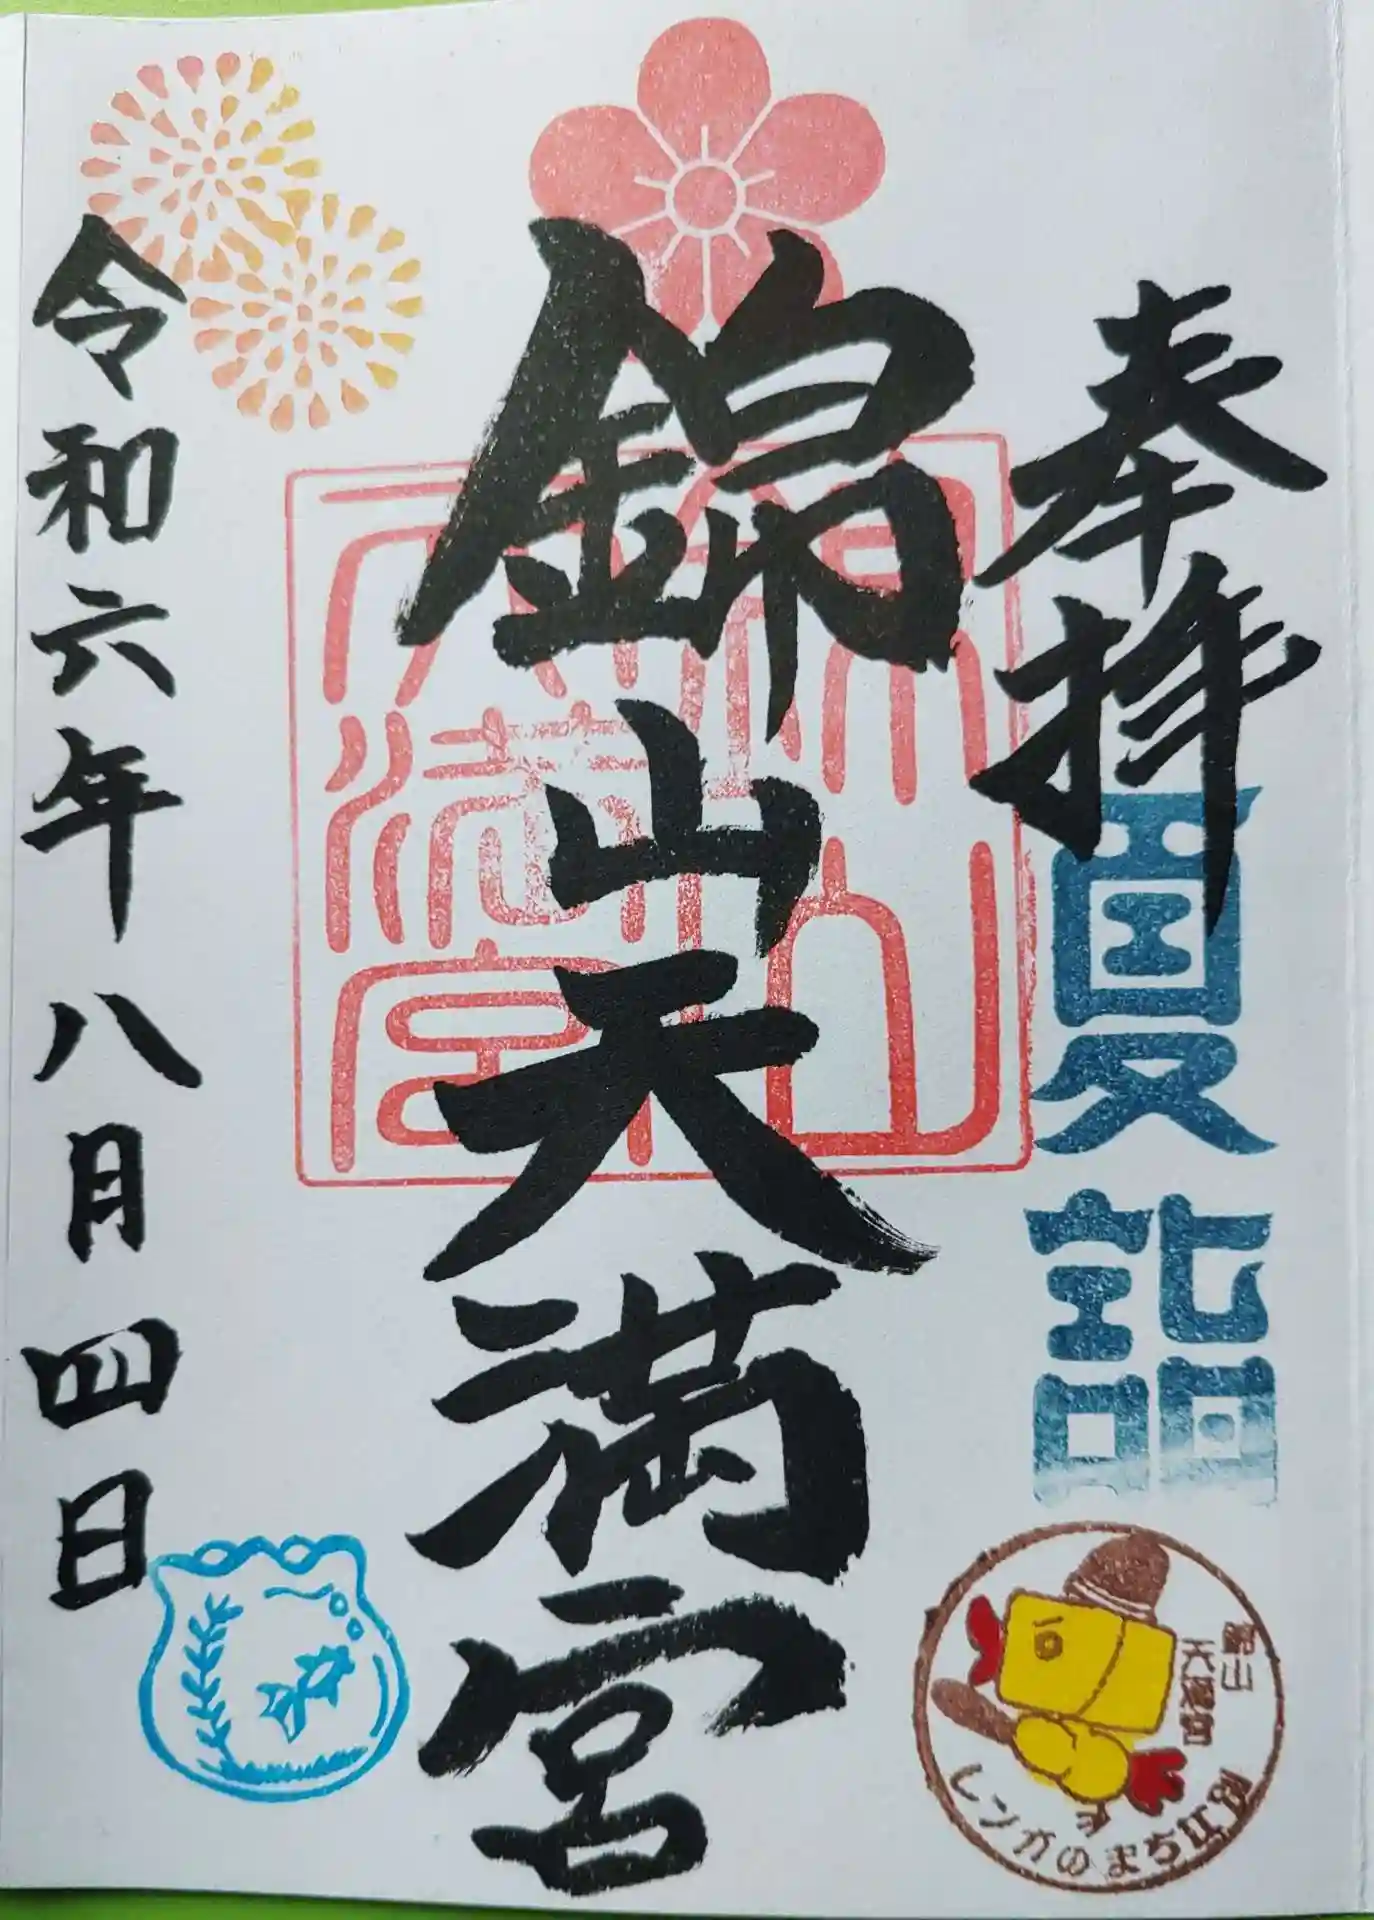 奉拝
夏詣
錦山天満宮
令和六年八月四日
錦山天満宮
錦山
天満宮
レンガのまち江別